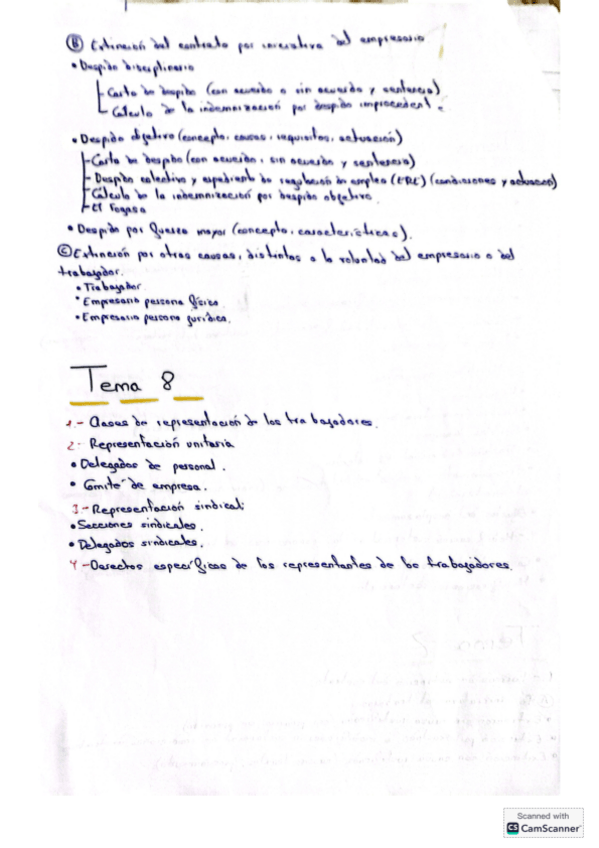 Ⓑ Extinción del contrato por iniciativa del empresario
• Despido disciplinario
Carta de despido (con acuerdo o sin acuerdo y sentencia)
Cálculo de la indemnización por despido improcedent
• Despido objetivo (concepto, causas, requisitos, actuación)
Carta de despido (con acuerdo, sin acuerdo y sentencia)
Despido colectivo y expediente de regulación de empleo (ERE) (condiciones y actuación)
Cálculo de la indemnización por despido objetivo.
El Fogasa
• Despido por fuerza mayor (concepto, características).
Ⓒ Extinción por otras causas, distintas a la voluntad del empresario o del
trabajador.
• Trabajador
• Empresario persona física.
• Empresario persona jurídica.
Tema 8
1.- Clases de representación de los trabajadores.
2.- Representación unitaria
• Delegados de personal.
• Comité de empresa.
3-Representación sindical:
• Secciones sindicales.
• Delegados sindicales.
4-Derechos específicos de los representantes de los trabajadores.
Scanned with
CS CamScanner